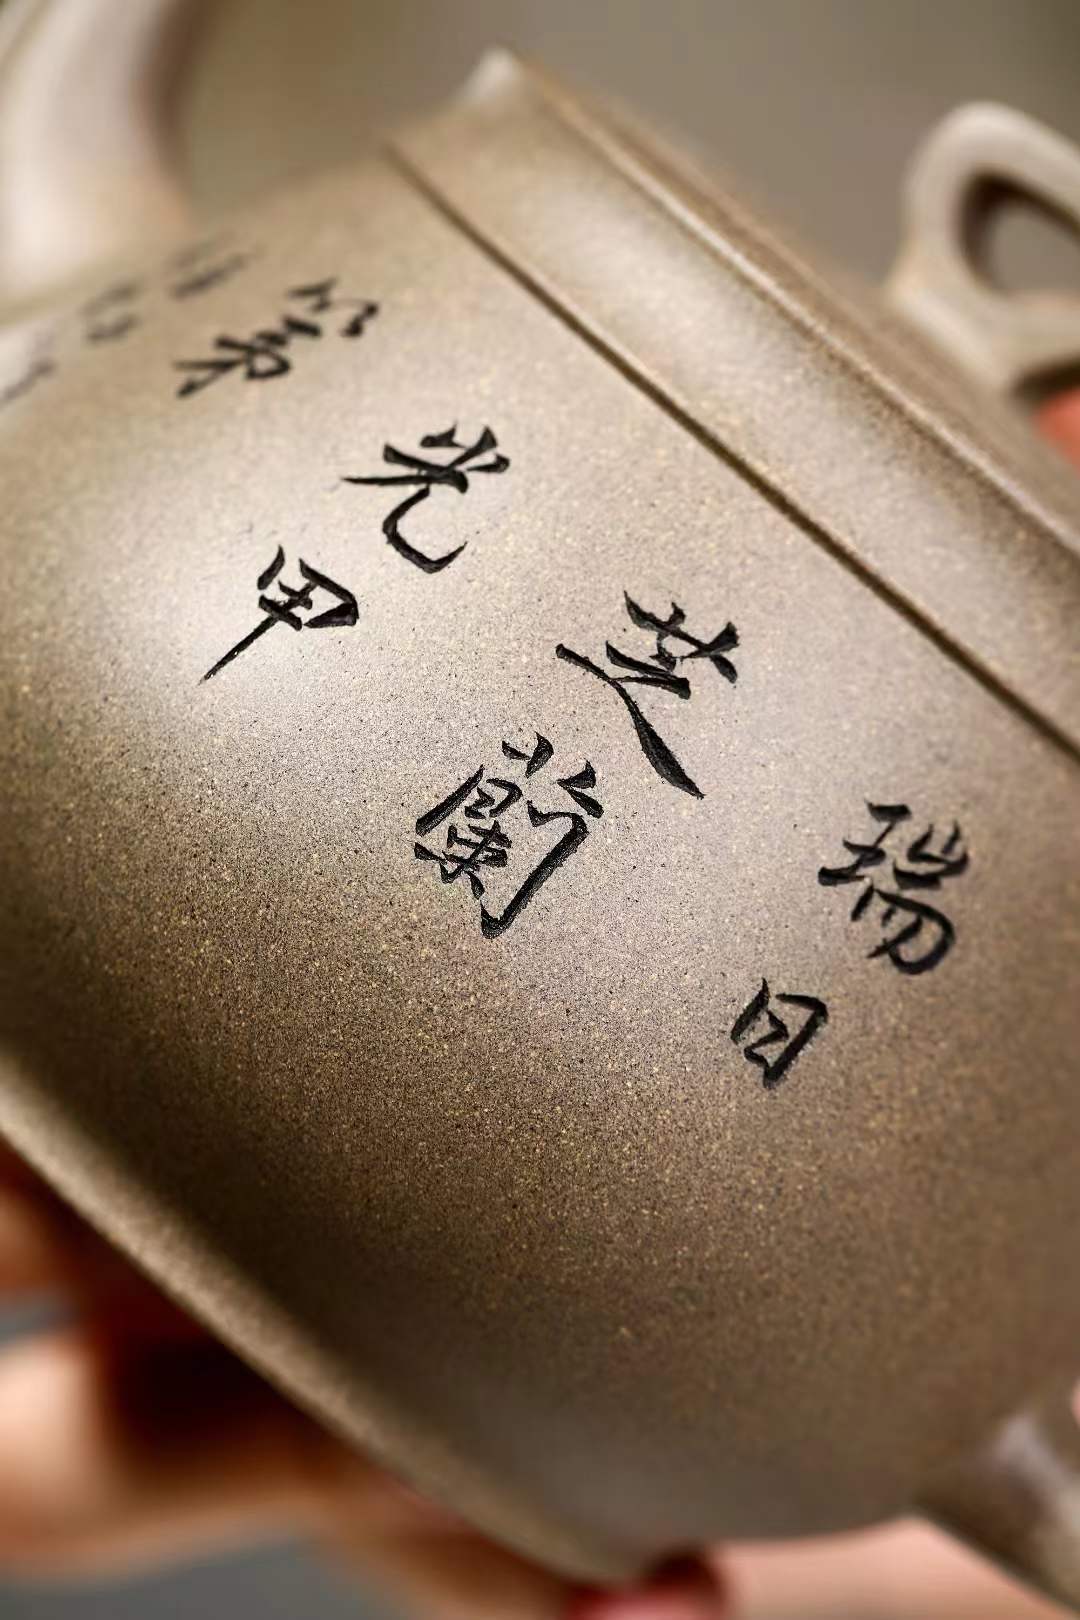 瑞日
芝蘭
光甲
第